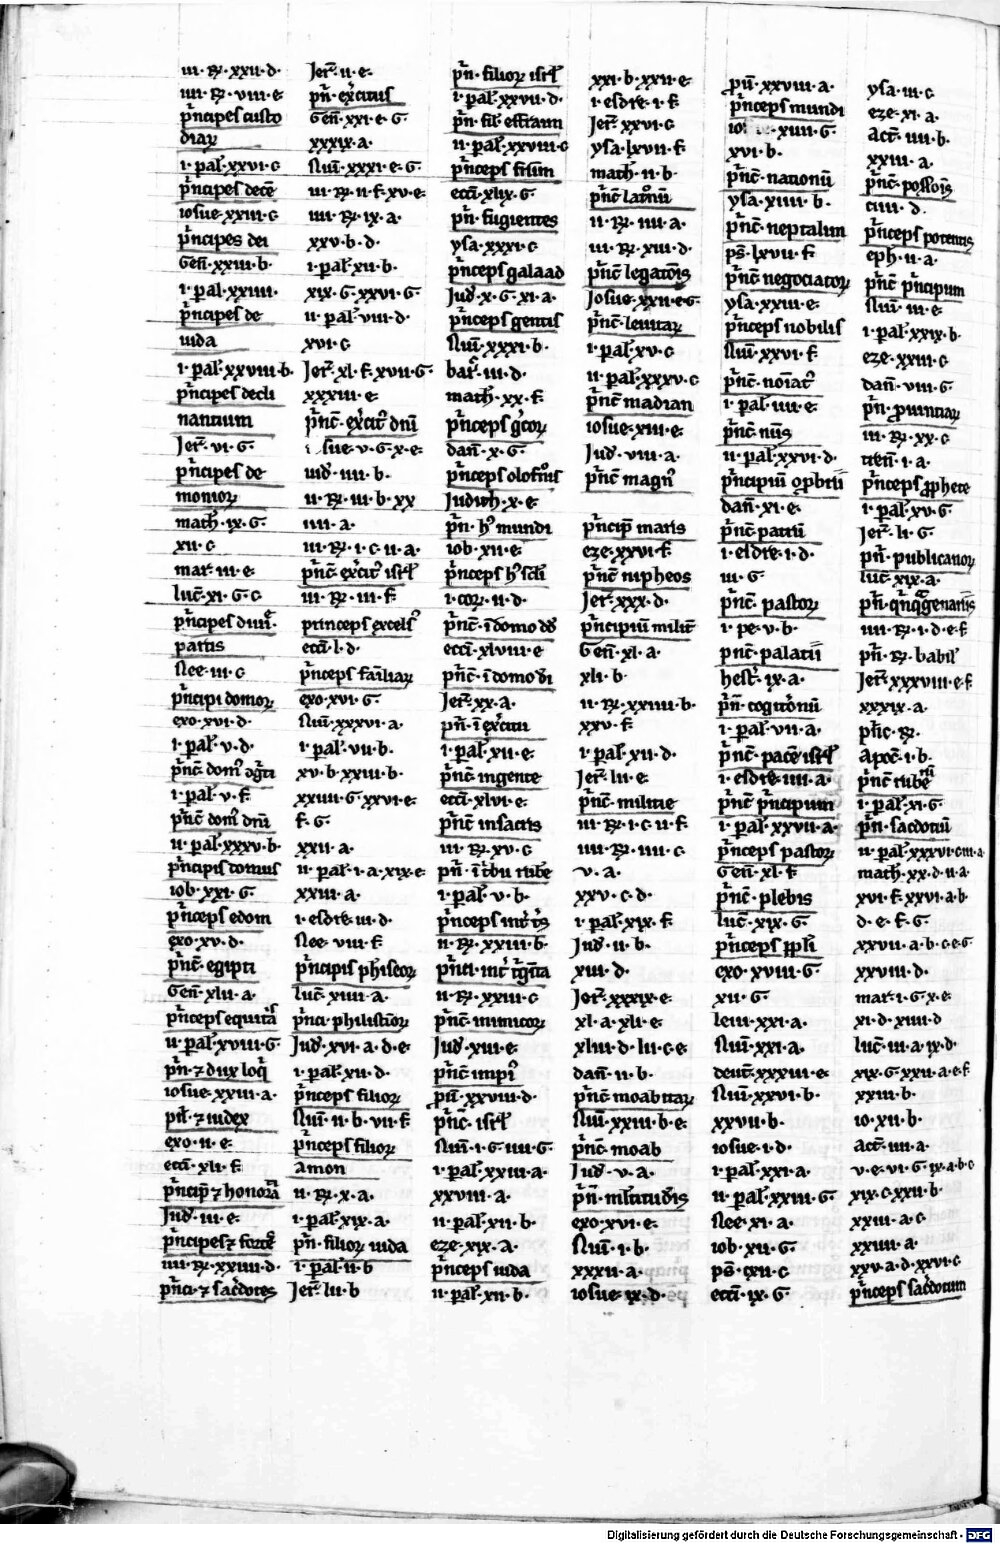 iii · R · xxii · d ·
iiii · R · viii · e
p̄ncipes custo
diar̄
i · pal̄ · xxvi · c
p̄ncipes decē
iosue · xxiii · c
p̄ncipes dei
Gen̄ · xxiii · b ·
i · pal · xxiiii ·
p̄ncipes de
iuda
i · pal̄ · xxviii · b ·
p̄ncipes decli
nantium
Jer̄ · vi · G ·
p̄ncipes de
monior̄
math̄ · ix · G ·
xii · c
mar̄ · iii · e
luc̄ · xi · G · c
p̄ncipes
partis
Nee · iii · c
p̄ncipi domor̄
exo · xvi · d ·
i · pal̄ · v · d ·
i · pal̄ · v · f
p̄nc̄ dom̄ dn̄i
ii · pal̄ · xxxv · b ·
p̄ncipis domus
iob · xxi · G ·
p̄nceps edom
exo · xv · d ·
p̄nc̄ egipti
Gen̄ · xlii · a ·
p̄nceps equitū
ii · pal̄ · xviii · G
p̄n · ⁊ dux
iosue · xxiii · a ·
⁊ iudex
exo · ii · e ·
ecc̄i · xli · f
p̄ncip̄ ⁊
Jud̄ · iii · e ·
p̄ncipes ⁊
iiii · R · xxiiii · d ·
p̄nci · ⁊ sac̄dotes
Jer̄ · ii · e ·
p̄n · exc̄itus
Gen̄ · xxi · e · G ·
xxxix · a ·
Nū · xxxi · e · G ·
iii · R · ii · f · xv · e ·
iiii · R · ix · a ·
xxv · b · d ·
i · pal̄ · xii · b ·
xix · G · xxvi · G ·
ii · pal̄ · viii · d ·
xvi · c
Jer̄ · xl · f · xvii · G ·
xxxiii · e ·
p̄nc̄ · exc̄it̄ dn̄i
sue · v · G · x · e ·
iud̄ · iiii · b ·
ii · R · iii · b · xx
iiii · a ·
iii · R · i · c · ii · a ·
p̄nc̄ · exc̄it̄ isrl̄
iii · R · iii · f
princeps excels̄
ecc̄i · l · d ·
p̄nceps
exo · xvi · G ·
Nū · xxxvi · a ·
i · pal̄ · vii · b ·
xv · b · xxiii · b ·
xxiiii · G · xxvi · e ·
f · G ·
xxii · a ·
ii · pal̄ · i · a · xix · e ·
xxiii · a ·
i · esdre · iii · d ·
Nee · viii · f
p̄ncipis phiseor̄
luc̄ · xiiii · a ·
p̄nci · philistior̄
Jud̄ · xvi · a · d · e ·
i · pal̄ · xii · d ·
p̄nceps filior̄
Nū · ii · b · vii · f ·
p̄nceps filior̄
Amon
ii · R · x · a ·
i · pal̄ · xix · a ·
p̄n · filior̄ iuda
i · pal̄ · ii · b
Jer̄ · lii · b
p̄n · filior̄ isrl̄
i · pal̄ · xxvii · d ·
p̄n · fil̄ · effraim
ii · pal̄ · xxviii · c
p̄nceps
ecc̄i · xlix · G ·
p̄n · fugientes
ysa · xxxi · c
p̄nceps galaad
Jud̄ · x · G · xi · a ·
p̄nceps gentis
Nū · xxxi · b ·
bar̄ · iii · d ·
math̄ · xx · f
p̄nceps
dan̄ · x · G ·
p̄nceps
Judich · x · e ·
p̄n · h̄ mundi
iob · xii · e ·
p̄nceps h̄ scl̄i
i · cor̄ · ii · d ·
p̄nc̄ · ī domo
ecc̄i · xlviii · e
p̄nc̄ · ī domo dī
Jer̄ · xx · a ·
p̄n · ī exc̄itu
i · pal̄ · xii · e ·
p̄nc̄ ingente
ecc̄i · xlvi · e ·
p̄nc̄
iii · R · xv · c
p̄n · ī rube
i · pal̄ · v · b ·
p̄nceps
ii · R · xxiii · b ·
p̄nci ·
ii · R · xxiii · c
p̄nc̄ inimicor̄
Jud̄ · xiii · e ·
p̄nc̄ impi
pū · xxviii · d ·
p̄nc̄ · isrl̄
Nū · i · G · iiii · G ·
i · pal̄ · xxiii · a ·
xxviii · a ·
ii · pal̄ · xii · b ·
eze · xix · a ·
p̄nceps iuda
ii · pal̄ · xii · b ·
xxi · b · xxii · e ·
i · esdre · i · f
Jer̄ · xxvi · c
ysa · lxvii · f
math̄ · ii · b ·
p̄nc̄ latronū
ii · R · iiii · a ·
iii · R · xiii · d ·
p̄nc̄ legatōis
Josue · xxii · e G ·
p̄nc̄ · leuitar̄
i · pal̄ · xv · c
ii · pal̄ · xxxv · c
p̄nc̄ madian
iosue · xiii · e ·
Jud̄ · viii · a ·
p̄nc̄ magn̄
p̄ncip̄ maris
eze · xxvi · f
p̄nc̄ nipheos
Jer̄ · xxx · d ·
p̄ncipiū milit̄
Gen̄ · xl · a ·
xli · b ·
ii · R · xxiiii · b ·
xxv · f
i · pal̄ · xii · d ·
Jer̄ · lii · e ·
p̄nc̄ · militie
iii · R · i · c · ii · f ·
iiii · R · iiii · c
v · a ·
xxv · c · d ·
i · pal̄ · xix · f
Jud̄ · ii · b ·
xiii · d ·
Jer̄ · xxxix · e ·
xl · a · xli · e
xliii · d · lii · c · e ·
dan̄ · ii · b ·
p̄nc̄ moabitar̄
Nū · xxiii · b · e ·
p̄nc̄ moab
Jud̄ · v · a ·
p̄n̄ · ml̄titudīs
exo · xvi · e ·
Nū · i · b ·
xxxii · a ·
iosue · ix · d ·
pū · xxviii · a ·
p̄nceps mundi
io · xiiii · G ·
xvi · b ·
p̄nc̄ · nationū
ysa · xiiii · b ·
p̄nc̄ · neptalim
ps̄ · lxvii · f
p̄nc̄ negociator̄
ysa · xxiii · e ·
p̄nceps nobilis
Nū · xxvi · f
p̄nc̄ · noīat̄
i · pal̄ · iiii · e ·
p̄nc̄
ii · pal̄ · xxvi · d ·
p̄ncipiū
dan̄ · xi · e ·
p̄nc̄ patrū
i · esdre · i · d ·
iii · G ·
p̄nc̄ · pastor̄
i · pe · v · b ·
p̄nc̄ · palatii
hest̄ · ix · a ·
p̄n̄ · cogitōnū
i · pal̄ · vii · a ·
p̄nc̄ · pacē isrl̄
i · esdre · iiii · a ·
p̄nc̄ p̄ncipum
i · pal̄ · xxvii · a ·
p̄nceps pastor̄
Gen̄ · xl · f
p̄nc̄ · plebis
luc̄ · xix · G ·
p̄nceps ppl̄i
exo · xviii · G ·
xii · G ·
leui · xxi · a ·
Nū · xxi · a ·
deut̄ · xxxiii · e ·
Nū · xxvi · b ·
xxvii · b ·
iosue · i · d ·
i · pal̄ · xxi · a ·
ii · pal̄ · xxiii · G
Nee · xi · a ·
iob · xii · G ·
ps̄ · cxii · c
ecc̄i · ix · G ·
ysa · iii · c
eze · xi · a ·
act̄ · iiii · b ·
xxiii · a ·
p̄nc̄ · possōis
ciiii · d ·
p̄nceps potentis
eph̄ · ii · a ·
p̄nc̄ p̄ncipum
Nū · iii · e ·
i · pal̄ · xxix · b ·
eze · xxiii · c
dan̄ · viii · G ·
p̄n · prouinciar̄
iii · R · xx · c
tren̄ · i · a ·
p̄nceps pphete
i · pal̄ · xv · G
Jer̄ · li · G ·
p̄n̄ · publicanor̄
luc̄ · xix · a ·
p̄n̄ · qnqgenariis
iiii · R · i · d · e · f
p̄n̄ · R · babil̄
Jer̄ · xxxviii · e · f
xxxix · a ·
· R ·
apoc̄ · i · b ·
p̄nc̄ ruben
i · pal̄ · xi · G ·
p̄n · sac̄dotū
ii · pal̄ · xxxvi · c iii · a ·
math̄ · xx · d · ii · a ·
xvi · f · xxvi · a · b
d · e · f · G ·
xxvii · a · b · c · e · G
xxviii · d ·
mar̄ · i · G · x · e ·
xi · d · xiiii · d
luc̄ · iii · a · ix · d ·
xix · G · xxii · a · e · f
xxiii · b ·
io · xii · b ·
act̄ · iiii · a ·
v · e · vi · G · ix · a · b · c
xix · c · xxii · b ·
xxiii · a · c
xxiiii · a ·
xxv · a · d · xxvi · c
p̄nceps sac̄dotum
Digitalisierung gefördert durch die Deutsche Forschungsgemeinschaft - DFG